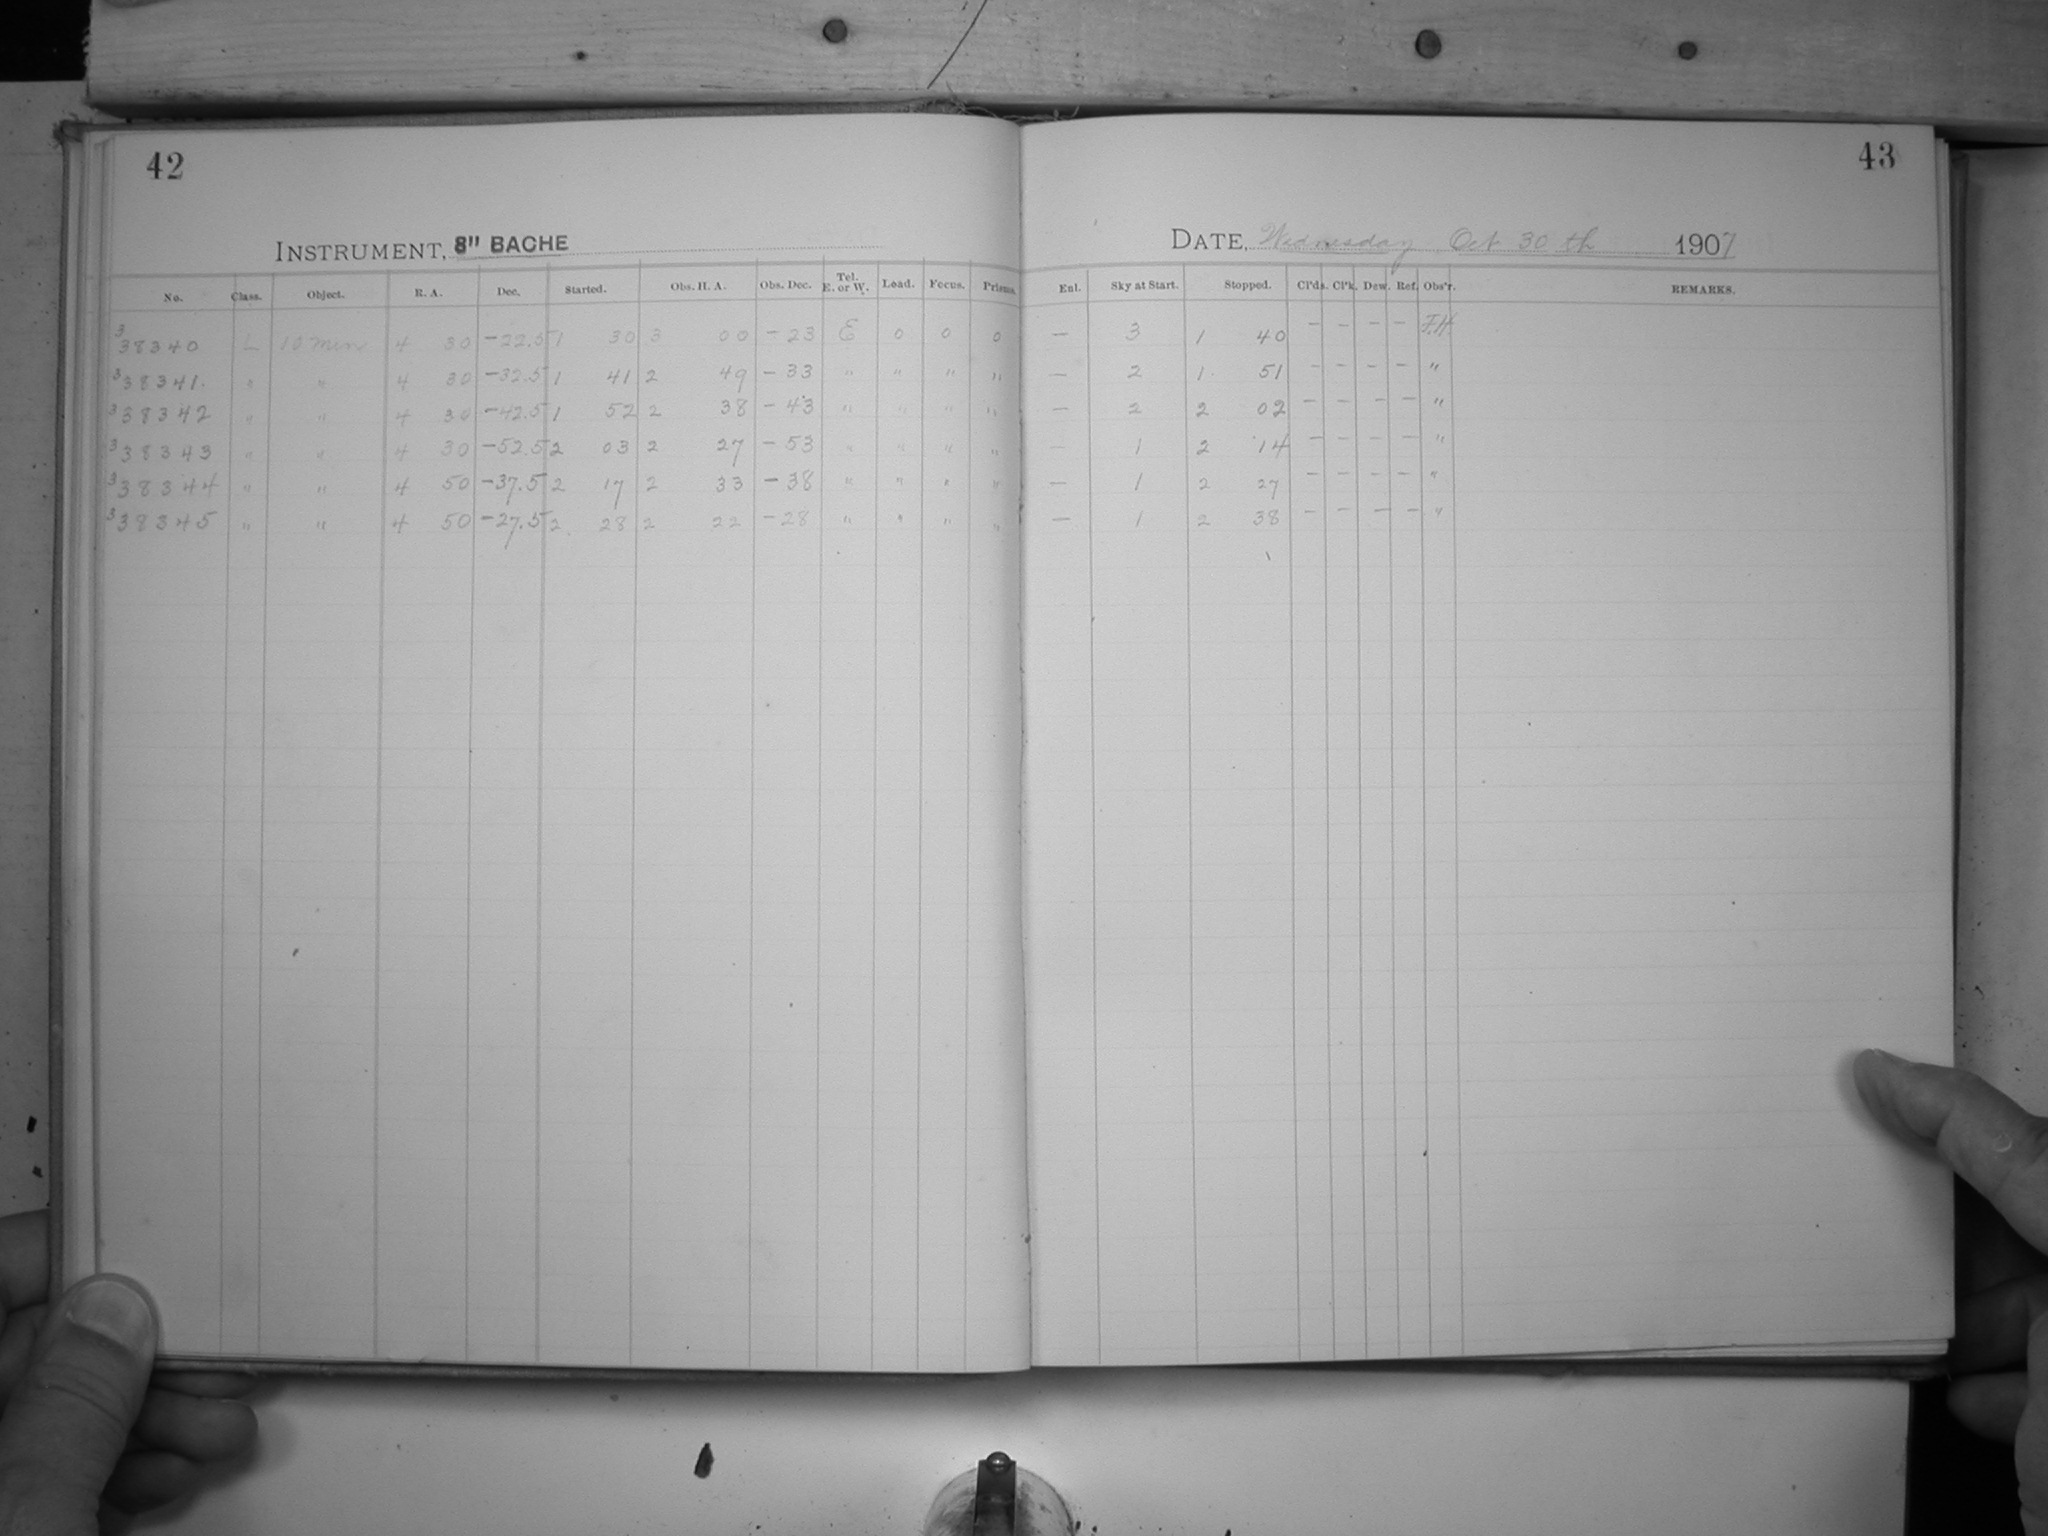 42
43
INSTRUMENT, 8" BACHE
DATE, Wednesday Oct 30 th 1907
No. Class. Object. R. A. Dec. Started. Obs. H. A. Obs. Dec. Tel. E. or W. Load. Focus. Prisms. Enl. Sky at Start. Stopped. Cl'ds. Cl'k. Dew. Ref. Obs'r. REMARKS.
338340 L 10 min 4 30 -22.5 1 30 3 00 -23 E 0 0 0 — 3 1 40 - - - - F.H.
338341. " " 4 30 -32.5 1 41 2 49 -33 " " " " — 2 1 51 - - - - "
338342 " " 4 30 -42.5 1 52 2 38 -43 " " " " — 2 2 02 - - - - "
338343 " " 4 30 -52.5 2 03 2 27 -53 " " " " — 1 2 14 - - - - "
338344 " " 4 50 -37.5 2 17 2 33 -38 " " " " — 1 2 27 - - - - "
338345 " " 4 50 -27.5 2 28 2 22 -28 " " " " — 1 2 38 - - - - "